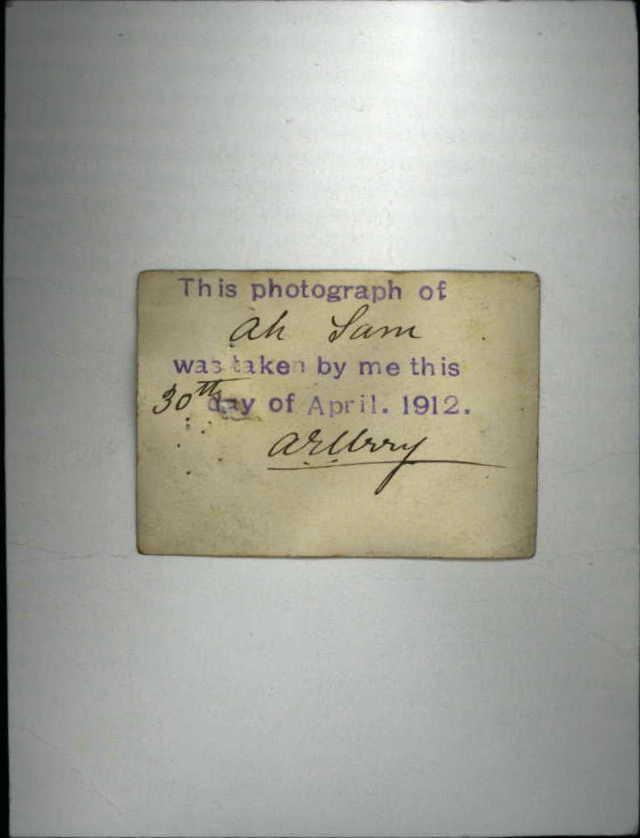 This photograph of
Ah Sam
was taken by me this
30th day of April. 1912.